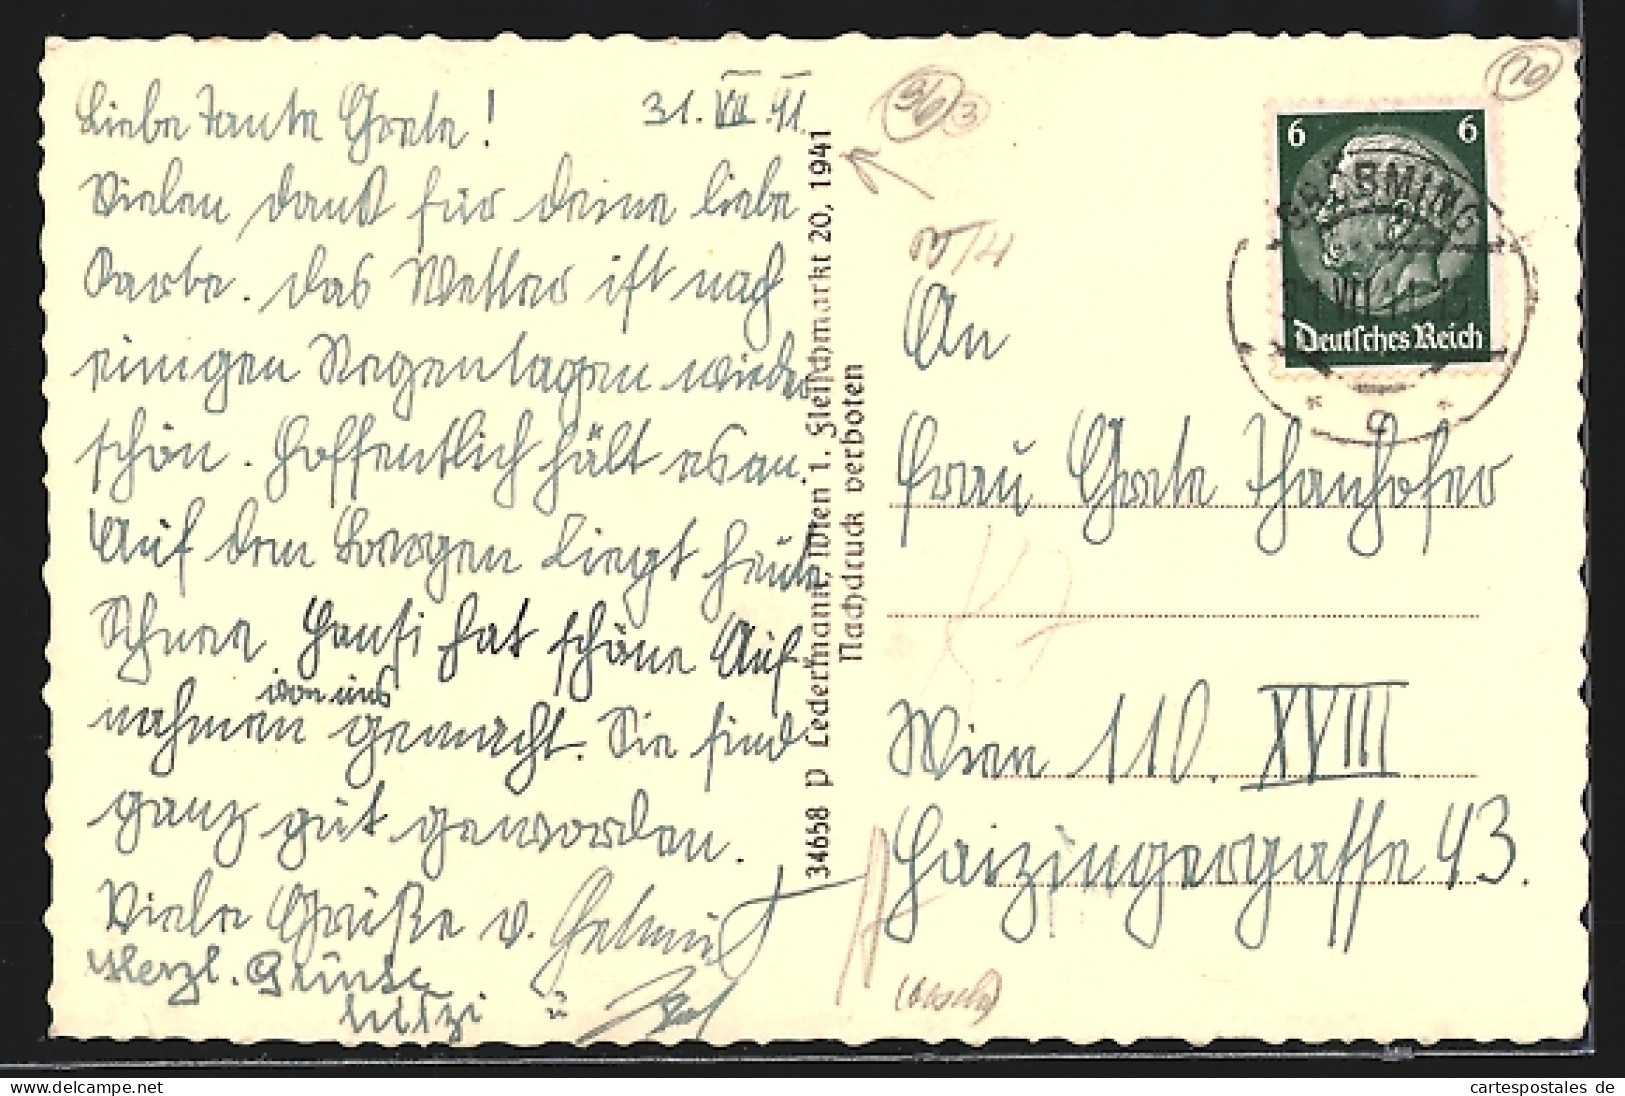 Liebe Tante Grete!
31. VII. 41.
Vielen Dank für deine liebe
Karte. Das Wetter ist nach
einigen Regentagen wieder
schön. Hoffentlich hält es an.
Auf den Bergen liegt heute
Schnee. Hansi hat schöne Auf
nahmen von uns gemacht. Sie sind
ganz gut geworden.
Viele Grüße v. Helmut
Herzl. Grüsse
Mitzi u
34658 P Ledermann, Wien 1. Fleischmarkt 20, 1941
Nachdruck verboten
10
3
6 6
Deutsches Reich
GRÖBMING
31.VII.41.15
a
An
Frau Grete Thanhofer
Wien 110. XVIII
Haizingergasse 43.
Hest-Nr. 11686196
cartespostales de